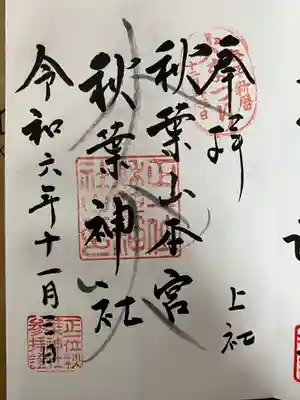 奉拝
上社
秋葉山本宮
秋葉神社
令和六年十一月三日